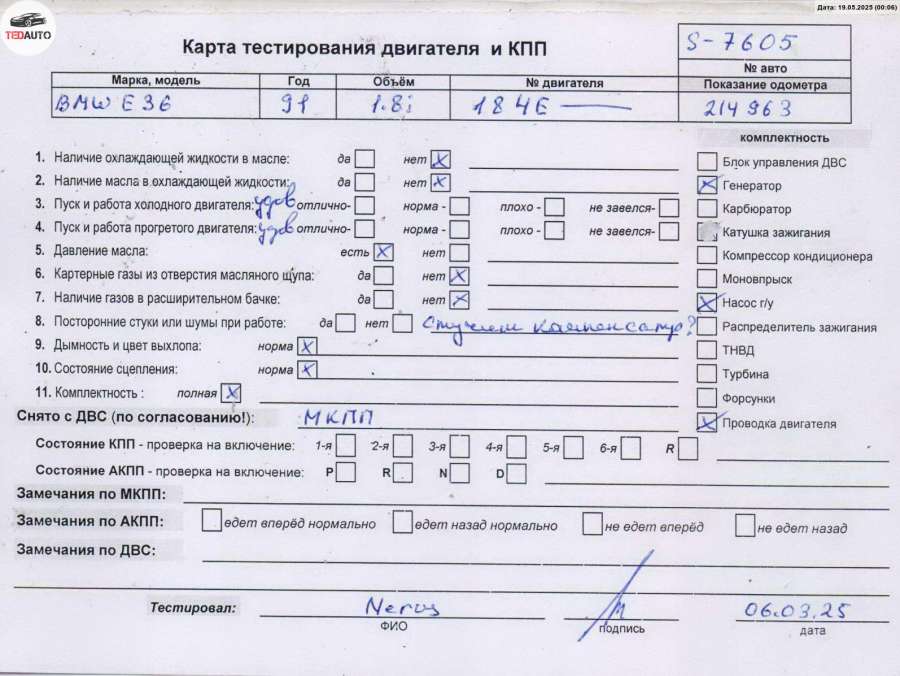 Дата: 19.05.2025 (00:06)
TEDAUTO
Карта тестирования двигателя и КПП
S-7605
№ авто
Марка, модель Год Объём № двигателя Показание одометра
BMW E36 91 1.8i 184E 214963
комплектность
1. Наличие охлаждающей жидкости в масле: да нет X
Блок управления ДВС
2. Наличие масла в охлаждающей жидкости: да нет X
Генератор X
3. Пуск и работа холодного двигателя: удов отлично- норма - плохо - не завелся-
Карбюратор
4. Пуск и работа прогретого двигателя: удов отлично- норма - плохо - не завелся-
Катушка зажигания
5 Давление масла: есть X нет
Компрессор кондиционера
6. Картерные газы из отверстия масляного щупа: да нет X
Моновпрыск
7. Наличие газов в расширительном бачке: да нет X
Насос г/у X
8. Посторонние стуки или шумы при работе: да нет
Распределитель зажигания
9. Дымность и цвет выхлопа: норма X
ТНВД
10. Состояние сцепления: норма X
Турбина
11. Комплектность : полная X
Форсунки
Снято с ДВС (по согласованию!): МКПП
Проводка двигателя X
Состояние КПП - проверка на включение: 1-я 2-я 3-я 4-я 5-я 6-я R
Состояние АКПП - проверка на включение: P R N D
Замечания по МКПП:
Замечания по АКПП: едет вперёд нормально едет назад нормально не едет вперёд не едет назад
Замечания по ДВС:
Тестировал: 06.03.25
ФИО подпись дата